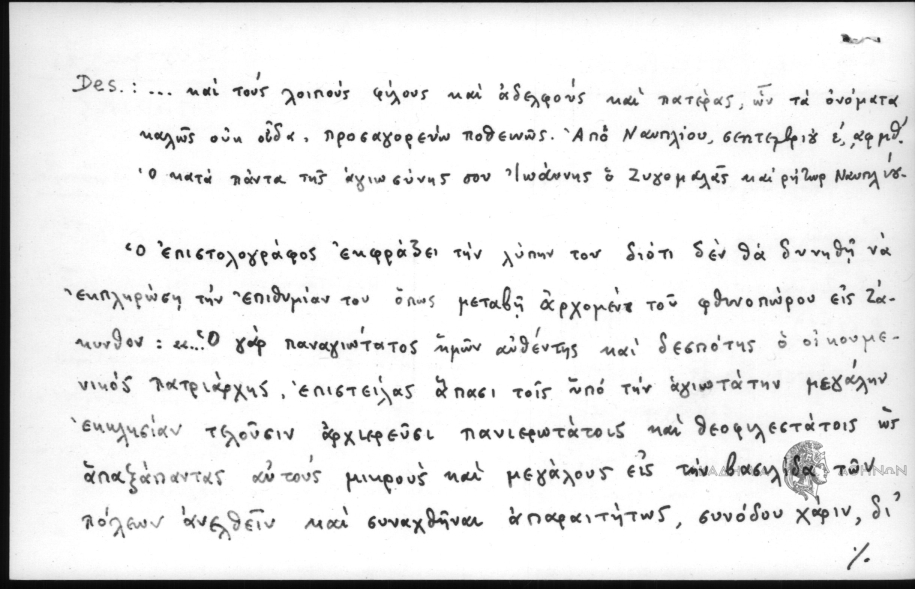 Des.: ... καὶ τοὺς λοιποὺς φίλους καὶ ἀδελφοὺς καὶ πατέρας, ὧν τὰ ὀνόματα
καλῶς οὐκ οἶδα, προσαγορεύω ποθεινῶς. Ἀπὸ Ναυπλίου, σεπτεμβρίου ε΄, ͵αφμθ΄.
Ὁ κατὰ πάντα τῆς ἁγιωσύνης σου Ἰωάννης ὁ Ζυγομαλᾶς καὶ ρήτωρ Ναυπλίου.
Ὁ ἐπιστολογράφος ἐκφράζει τὴν λύπην του διότι δὲν θὰ δυνηθῇ νὰ
ἐκπληρώσῃ τὴν ἐπιθυμίαν του ὅπως μεταβῇ ἀρχομένου τοῦ φθινοπώρου εἰς Ζά-
κυνθον: «...Ὁ γὰρ παναγιώτατος ἡμῶν αὐθέντης καὶ δεσπότης ὁ οἰκουμε-
νικὸς πατριάρχης, ἐπιστείλας ἅπασι τοῖς ὑπὸ τὴν ἁγιωτάτην μεγάλην
ἐκκλησίαν τελοῦσιν ἀρχιερεῦσι πανιερωτάτοις καὶ θεοφιλεστάτοις ὡς
ἁπαξάπαντας αὐτοὺς μικροὺς καὶ μεγάλους εἰς τὴν βασιλίδα τῶν
πόλεων ἀνελθεῖν καὶ συναχθῆναι ἀπαραιτήτως, συνόδου χάριν, δι᾽
./.